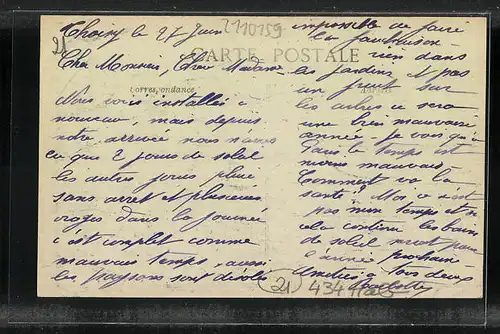 Thoiry le 27 Juin
2110159
CARTE POSTALE
Correspondance
Cher Monsieur, Chère Madame
Nous voici installés à
nouveau, mais depuis
notre arrivée nous n'avons
eu que 2 jours de soleil
les autres jours pluie
sans arret et plusieurs
orages dans la journée
c'est complet comme
mauvais temps, aussi
les paysans sont désolés
impossible de faire
les
rien dans
les jardins et pas
un fruit sur
les arbres ce sera
une bien mauvaise
année je vois qu'à
Paris le temps est
moins mauvais
Comment va la
santé. Moi ce n'est
pas mon temps et si
cela continue les bains
de soleil seront pour
l'année prochaine
Amitiés à tous deux
21
434